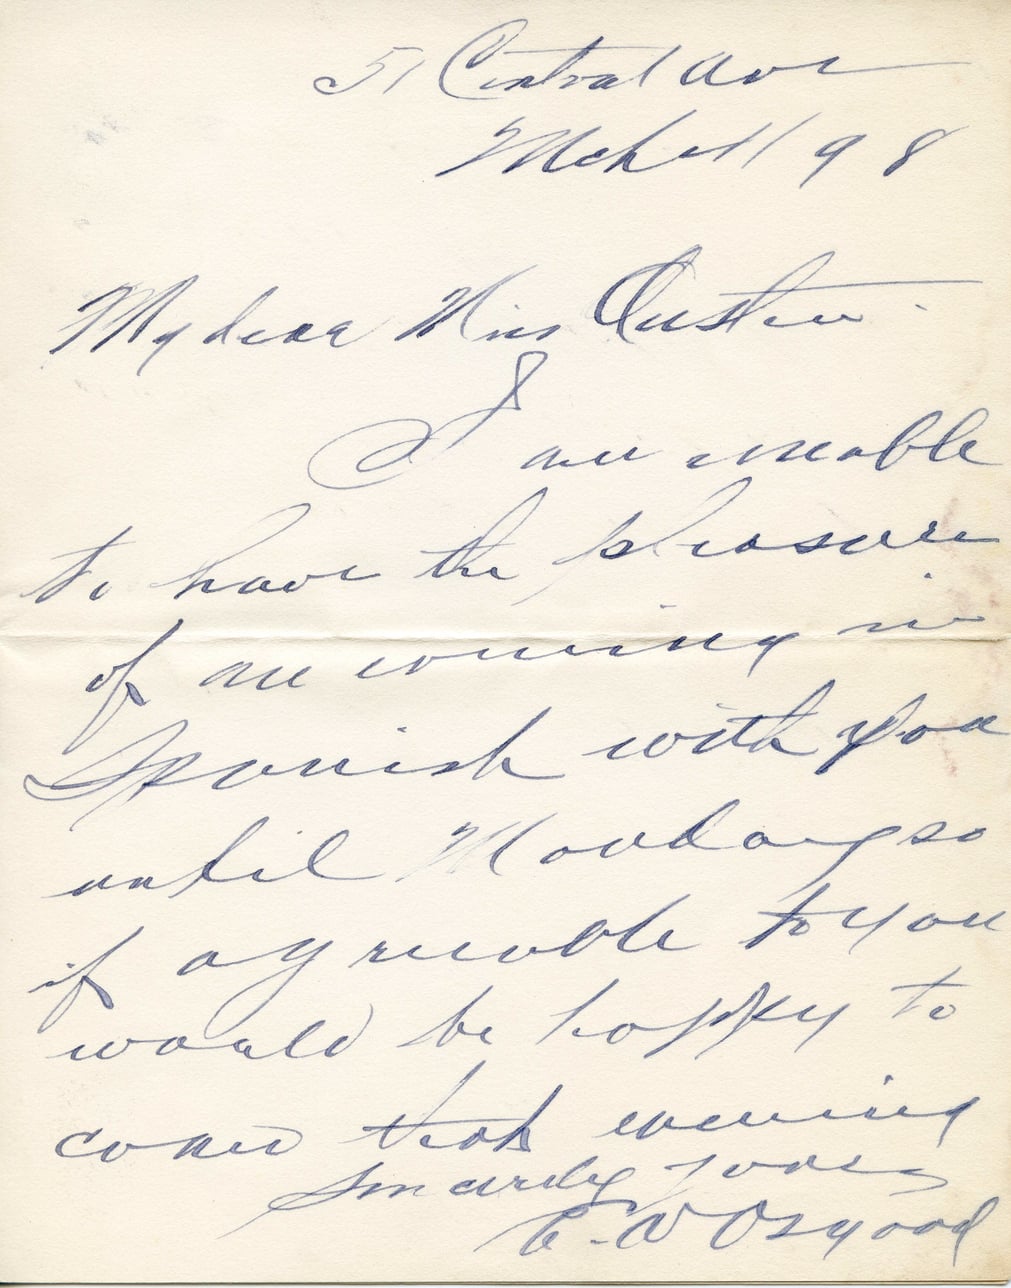 51 Central Ave
Mch 11 98
My dear Miss Austin
I am unable
to have the pleasure
of an evening in
Spanish with you
until Monday so
if agreeable to you
would be happy to
come that evening
Sincerely yours
E. W Osgood